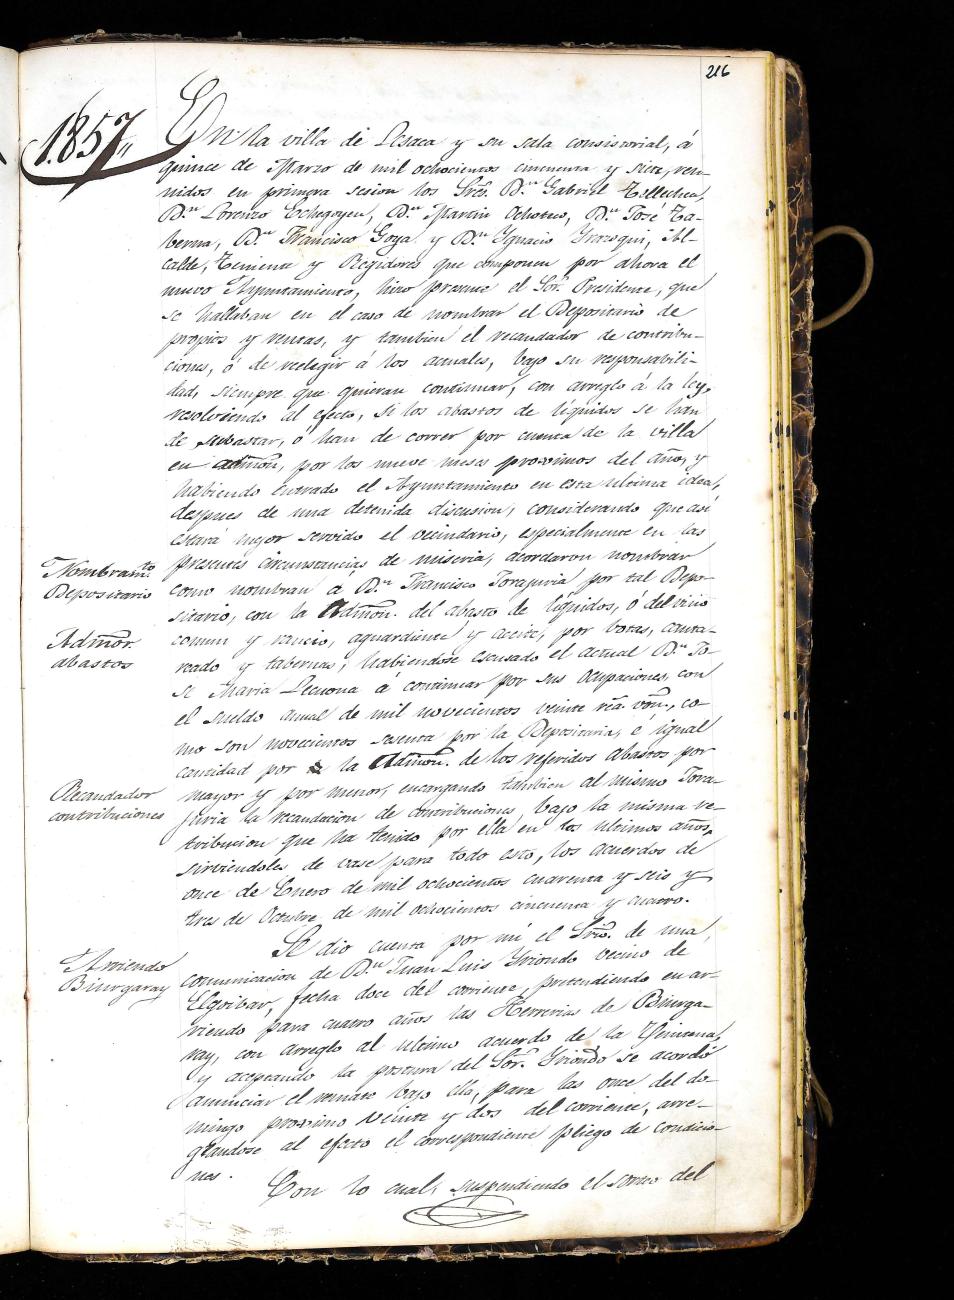 216
1857,,
En la villa de Lesaca y su sala consistorial, á
quince de Marzo de mil ochocientos cincuenta y siete, reu-
nidos en primera sesion los Srẽs. D.n Gabriel Tellechea,
D.n Lorenzo Echegoyen, D.n Martin Ochoteco, D.n José Ta-
berna, D.n Francisco Goya y D.n Ygnacio Yrazoqui, Al-
calde, Teniente y Regidores que componen por ahora el
nuevo Ayuntamiento, hizo presente el Sor. Presidente, que
se hallaban en el caso de nombrar el Depositario de
propios y rentas, y tambien el recaudador de contribu-
ciones, ó de reeligir á los actuales, bajo su responsabili-
dad, siempre que quieran continuar, con arreglo á la ley,
resolviendo al efecto, si los abastos de líquidos se han
de subastar, ó han de correr por cuenta de la villa
en admõn, por los nueve meses proximos del año, y
habiendo entrado el Ayuntamiento en esta ultima idea,
despues de una detenida discusion, considerando que así
estará mejor servido el vecindario, especialmente en las
presentes circunstancias de miseria, acordaron nombrar
Nombram.to
Depositario
como nombran á D.n Francisco Torajuria por tal Depo-
sitario, con la Admõn. del abasto de líquidos, ó del vino
Admõr.
abastos
comun y rancio, aguardiente y aceite, por botas, canta-
reado y tabernas, habiendose escusado el actual D.n Jo-
sé Maria Lecuona á continuar por sus ocupaciones, con
el sueldo anual de mil novecientos veinte rẽa. vẽn., co-
mo son novecientos sesenta por la Depositaria, é igual
cantidad por la Admõn. de los referidos abastos por
Recaudador
contribuciones
mayor y por menor, encargando tambien al mismo Tora-
juria la recaudacion de contribuciones bajo la misma re-
tribucion que ha tenido por ella en los ultimos años,
sirviendoles de vase para todo esto, los acuerdos de
once de Enero de mil ochocientos cuarenta y seis y
tres de Octubre de mil ochocientos cincuenta y cuatro.
Se dio cuenta por mi el Srĩo. de una
Arriendo
Biurgaray
comunicacion de D.n Juan Luis Yriondo vecino de
Elgoibar, fecha doce del corriente, pretendiendo en ar-
riendo para cuatro años las Herrerias de Biurga-
ray, con arreglo al ultimo acuerdo de la Quincena,
y aceptando la postura del Sor. Yriondo se acordó
anunciar el remate bajo ella, para las once del do-
mingo proximo veinte y dos del corriente, arre-
glandose al efecto el correspondiente pliego de condicio-
nes.
Con lo cual, suspendiendo el sorteo del